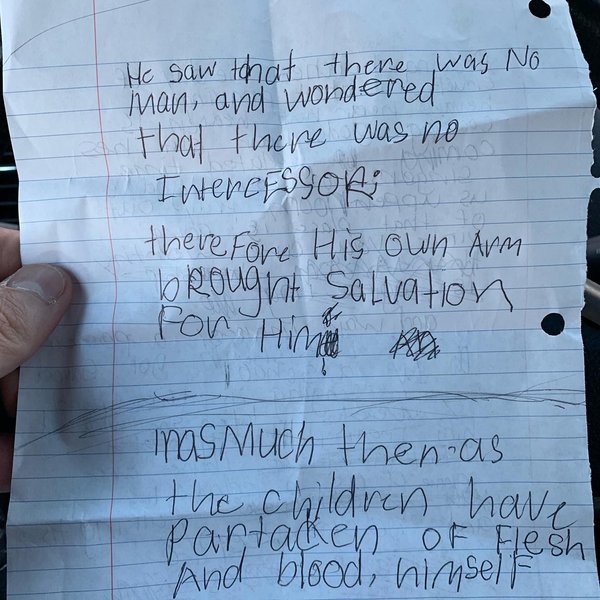 He saw that there was No
man, and wondered
that there was no
InterCESSOR;
thereFore His own Arm
bROUGht Salvation
For Him;
inasMuch then-as
the children have
Partaken OF Flesh
And blood, himself